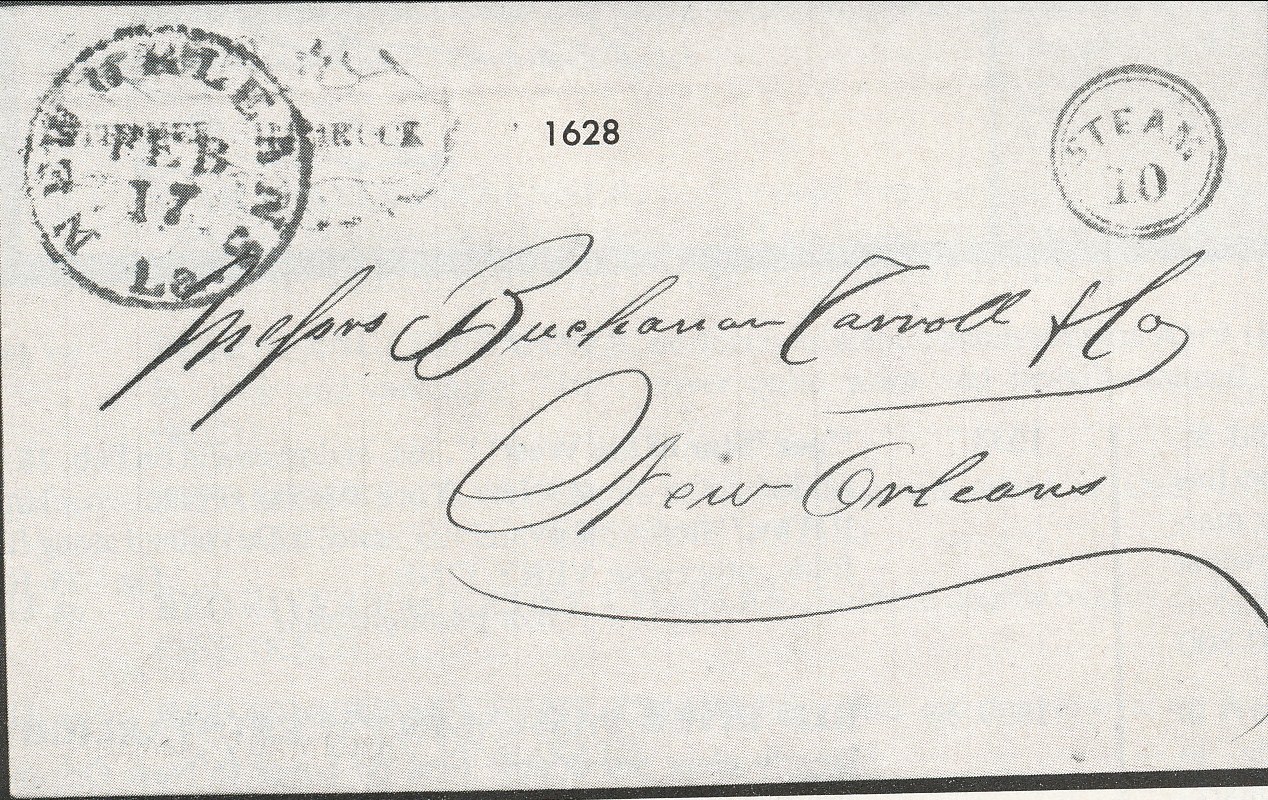 NEW ORLEANS La
FEB
17
1628
STEAM
10
Messrs Buchanan Carroll & Co
New Orleans